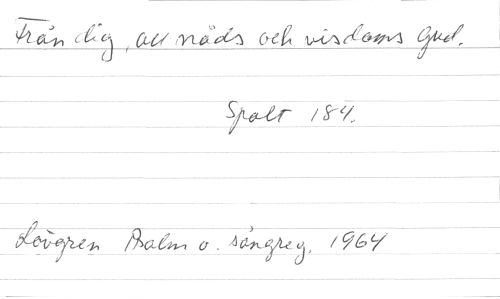 Från dig, all nåds och visdoms Gud.
Spalt 184.
Lövgren Psalm o. sångreg. 1964